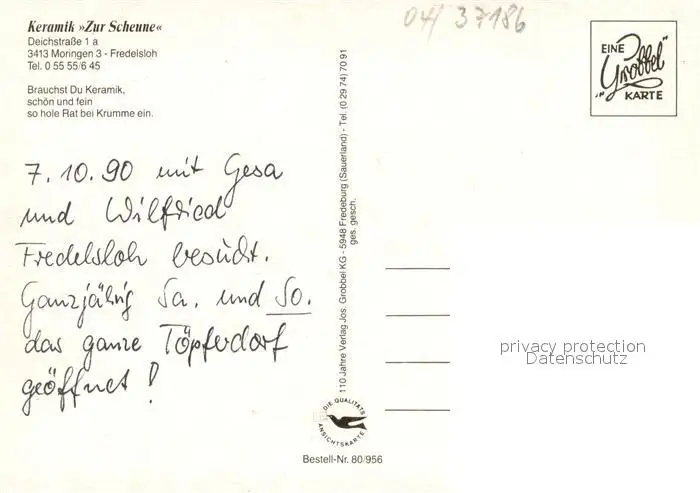 Keramik »Zur Scheune«
Deichstraße 1 a
3413 Moringen 3 - Fredelsloh
Tel. 0 55 55/6 45
Brauchst Du Keramik,
schön und fein
so hole Rat bei Krumme ein.
04/ 37186
EINE
"Grobbel"
KARTE
7.10.90 mit Gesa
und Wilfried
Fredelsloh besucht.
Ganzjährig Sa. und So.
das ganze Töpferdorf
geöffnet!
110 Jahre Verlag Jos. Grobbel KG - 5948 Fredeburg (Sauerland) - Tel. (0 29 74) 70 91
ges. gesch.
privacy protection
Datenschutz
DIE QUALITÄTS
ANSICHTSKARTE
Bestell-Nr. 80/956